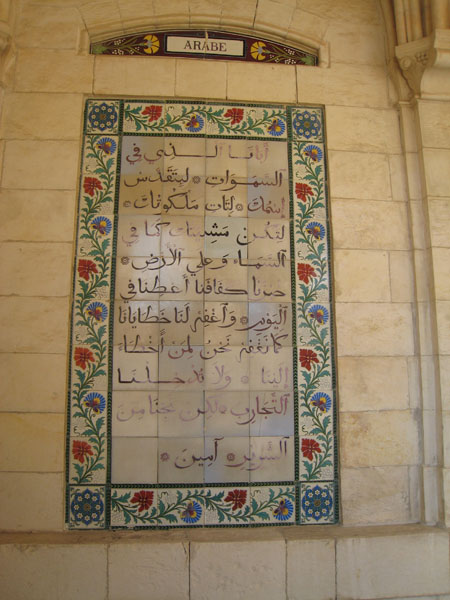 ARABE
أبانا الذي في
السموات * ليتقدس
إسمك * لتأت ملكوتك *
لتكن مشيئتك كما في
السماء وعلي الأرض *
خبزنا كفافنا أعطنا في
اليوم * وأغفر لنا خطايانا
كما نغفر نحن لمن أخطاء
إلينا * ولا تدخلنا
التجارب * لكن نجنا من
الشرير * آمين *